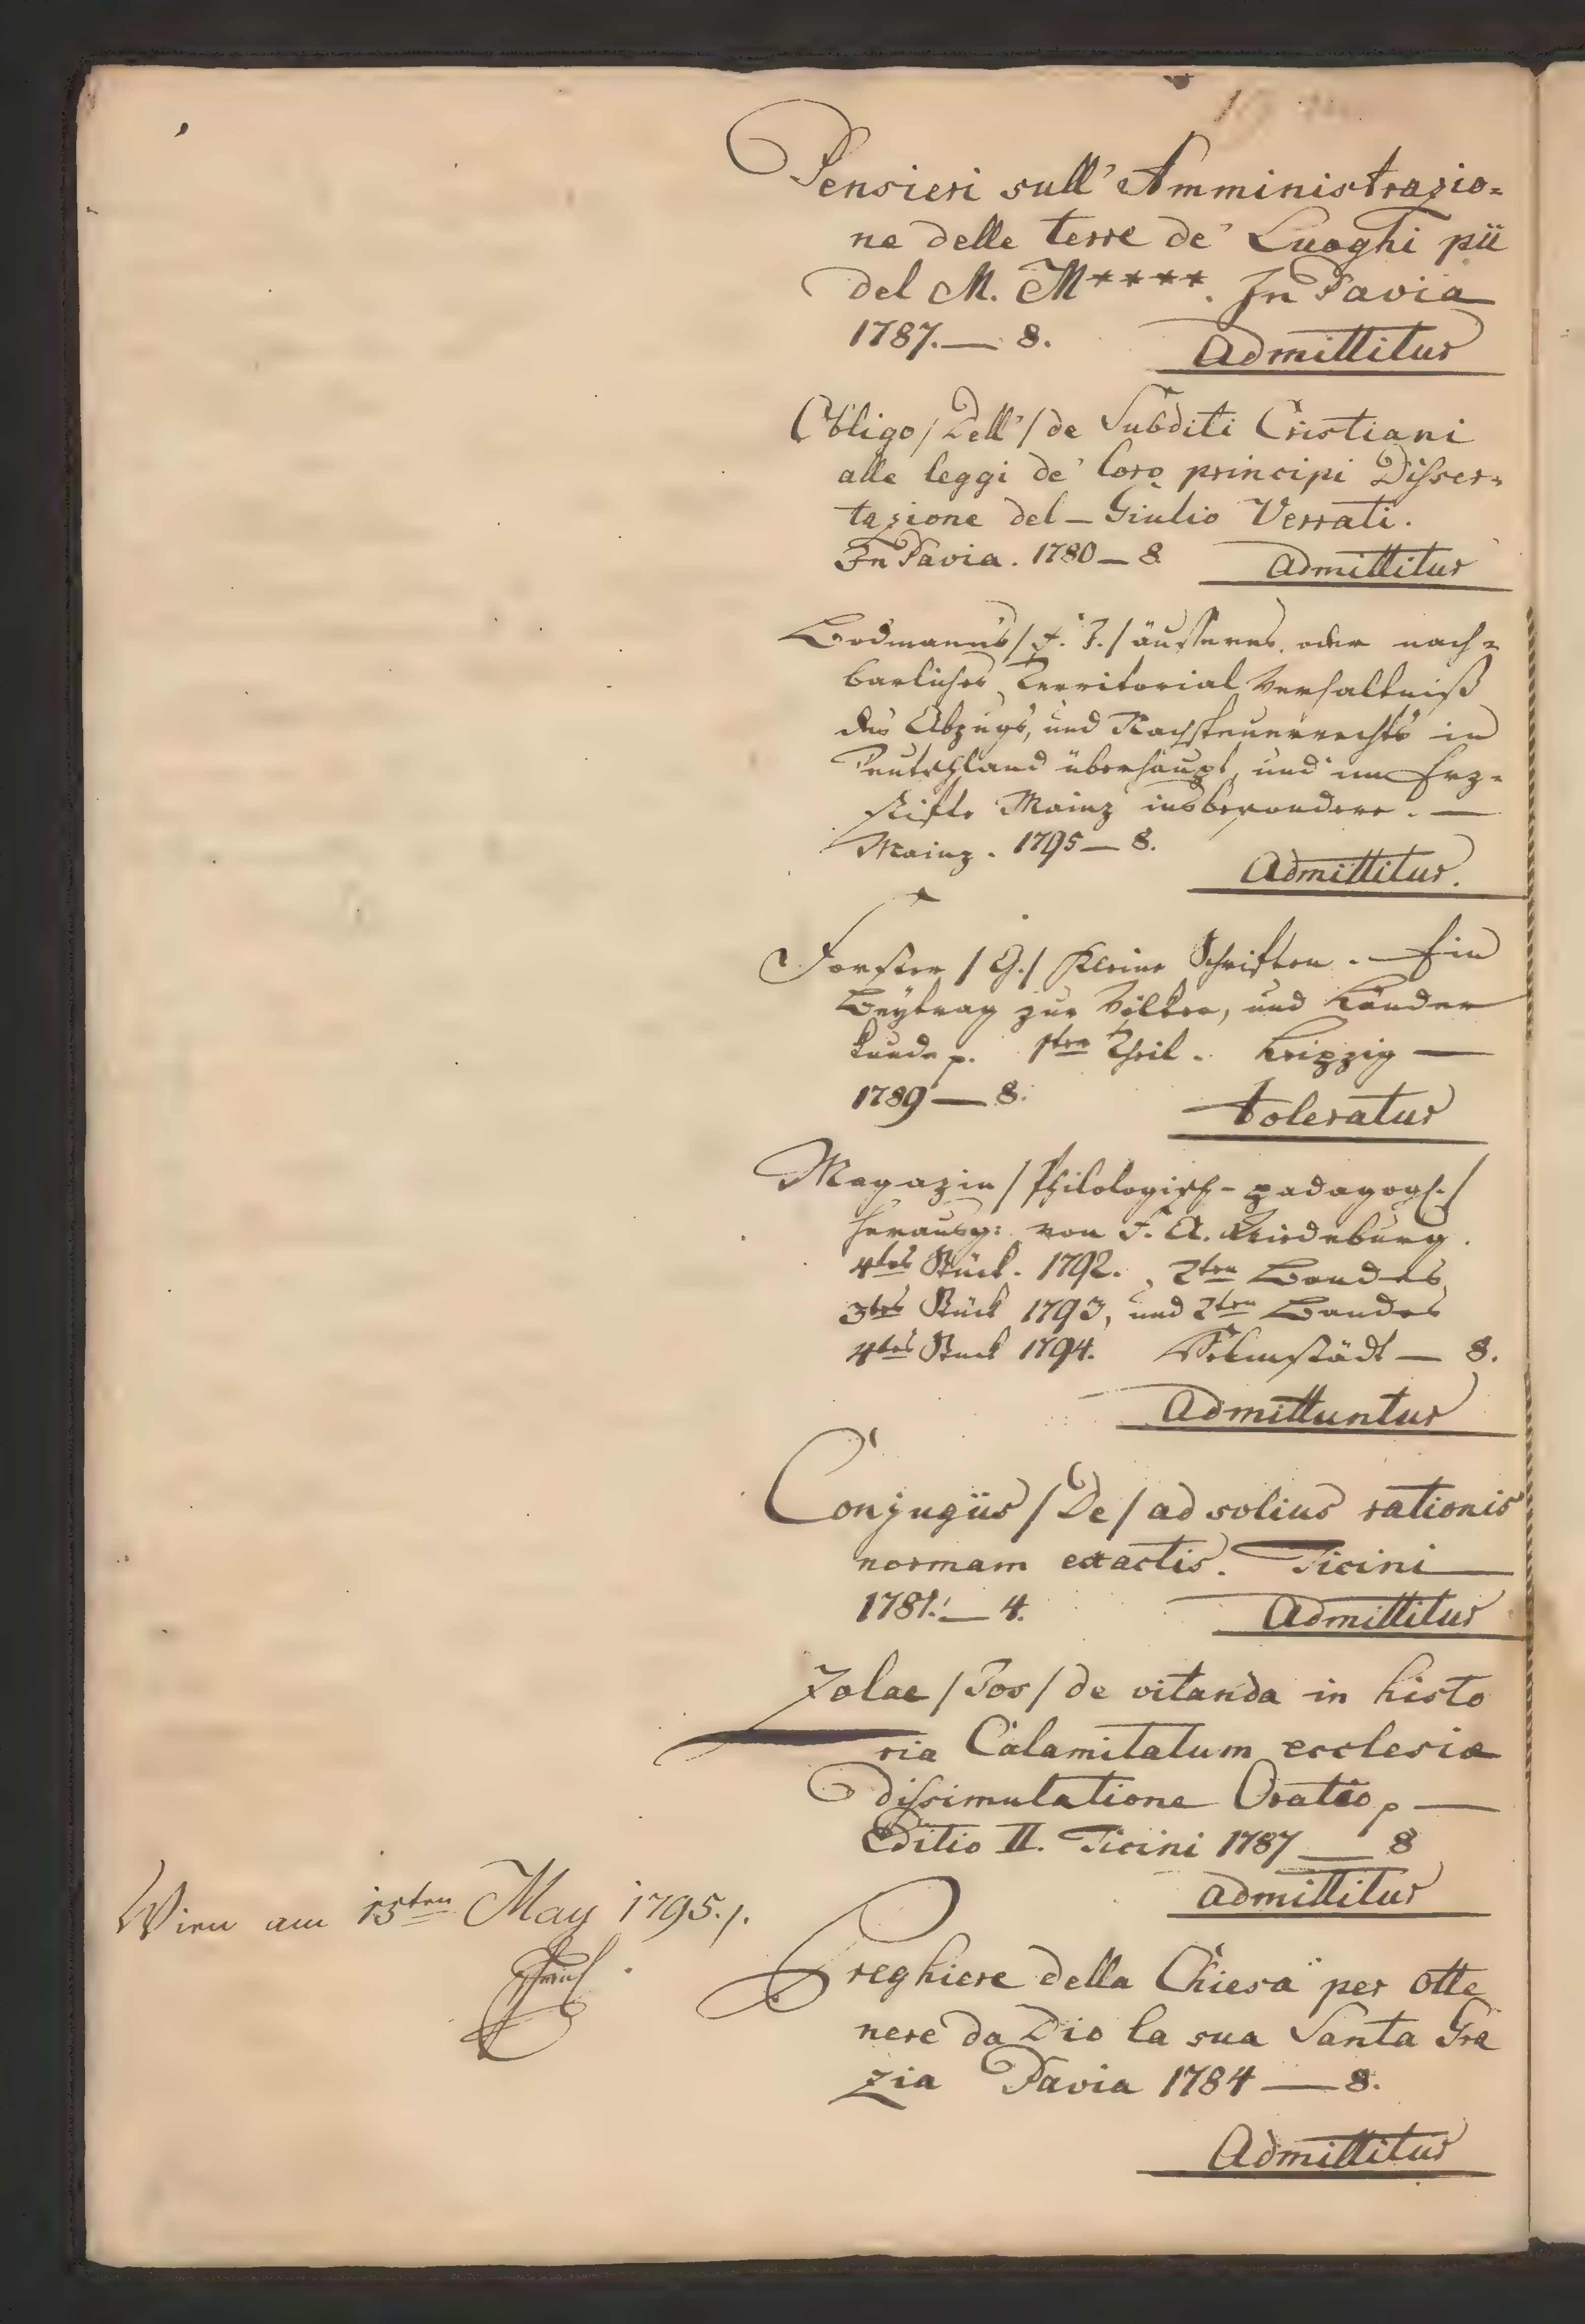 Pensieri sull' Amministrazio=
ne delle terre de' Luoghi pii
del M. M****. In Pavia
1787.— 8. Admittitur
Obligo / Dell' / de Subditi Cristiani
alle leggi de' loro principi Disser=
tazione del — Giulio Verrati.
In Pavia. 1780 — 8. Admittitur
Bodmanns / F. J. / äusseres, oder nach=
barliches Territorial Verhaltniß
des Abzugs, und Nachsteuerrechts in
Teutschland überhaupt, und im Erz=
stifte Mainz insbesondere. —
Mainz. 1795 — 8.
Admittitur.
Forster / G. / Kleine Schriften. Ein
Beytrag zur Völker, und Länder
kunde p. 1ter Theil. Leipzig —
1789 — 8.
toleratur
Magazin / Philologisch- padagogs. /
herausg: von F. A. Wiedeburg.
4tes Stück. 1792. 2ten Bandes
3tes Stück 1793, und 2ten Bandes
4tes Stuck 1794. Helmstädt — 8.
Admittuntur
Conjugiis / De / ad solius rationis
normam exactis. Ticini
1781. — 4. Admittitur
Zolae / Jos / de vitanda in histo
ria Calamitatum ecclesiae
dissimulatione Oratio p —
Editio II. Ticini 1787 — 8
admittitur
Preghiere della Chiesa per otte
nere da Dio la sua Santa Gra
zia Pavia 1784 — 8.
Admittitur
Wien am 15ten May 1795.